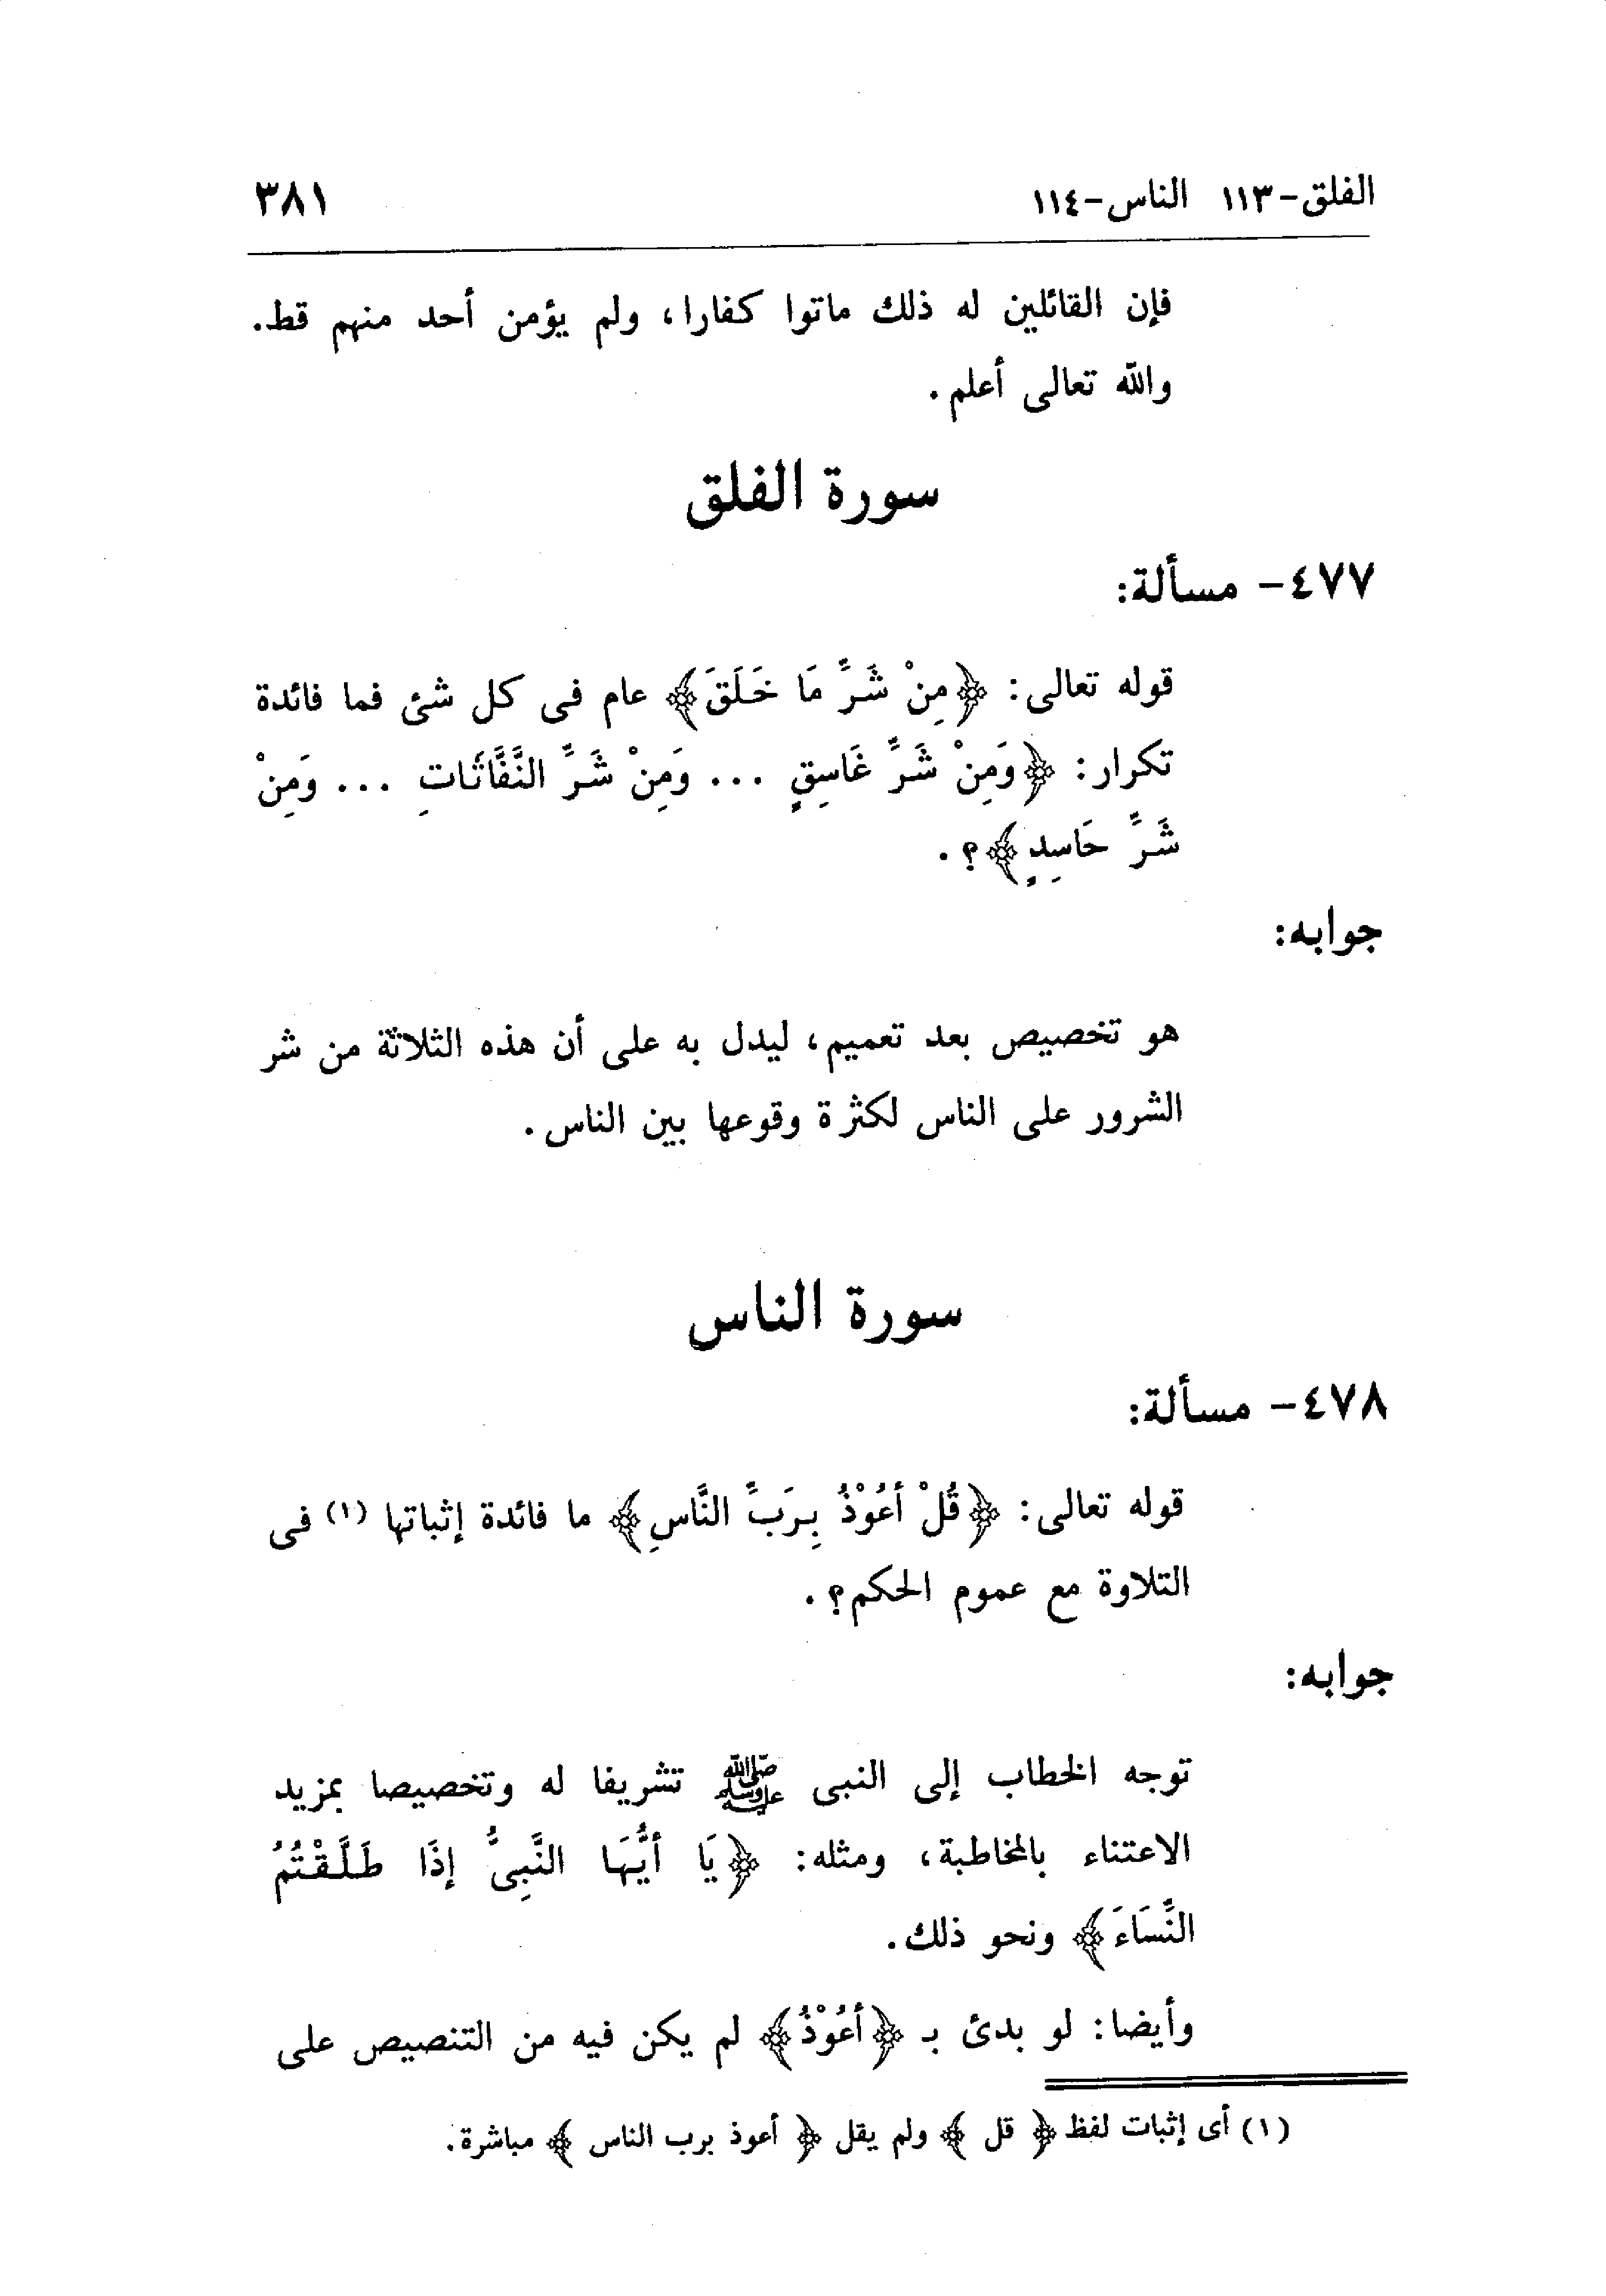 الفلق-١١٣ الناس-١١٤ ٣٨١
فإن القائلين له ذلك ماتوا كفارا، ولم يؤمن أحد منهم قط.
والله تعالى أعلم.
سورة الفلق
٤٧٧- مسألة:
قوله تعالى: ﴿مِنْ شَرِّ مَا خَلَقَ﴾ عام فى كل شئ فما فائدة
تكرار: ﴿وَمِنْ شَرِّ غَاسِقٍ ... وَمِنْ شَرِّ النَّفَّاثَاتِ ... وَمِنْ
شَرِّ حَاسِدٍ﴾؟.
جوابه:
هو تخصيص بعد تعميم، ليدل به على أن هذه الثلاثة من شر
الشرور على الناس لكثرة وقوعها بين الناس.
سورة الناس
٤٧٨- مسألة:
قوله تعالى: ﴿قُلْ أَعُوْذُ بِرَبِّ النَّاسِ﴾ ما فائدة إثباتها (١) فى
التلاوة مع عموم الحكم؟.
جوابه:
توجه الخطاب إلى النبى ﷺ تشريفا له وتخصيصا بمزيد
الاعتناء بالمخاطبة، ومثله: ﴿يَا أَيُّهَا النَّبِىُّ إِذَا طَلَّقْتُمُ
النِّسَاءَ﴾ ونحو ذلك.
وأيضا: لو بدئ بـ ﴿أَعُوْذُ﴾ لم يكن فيه من التنصيص على
(١) أى إثبات لفظ ﴿ قل ﴾ ولم يقل ﴿ أعوذ برب الناس ﴾ مباشرة.